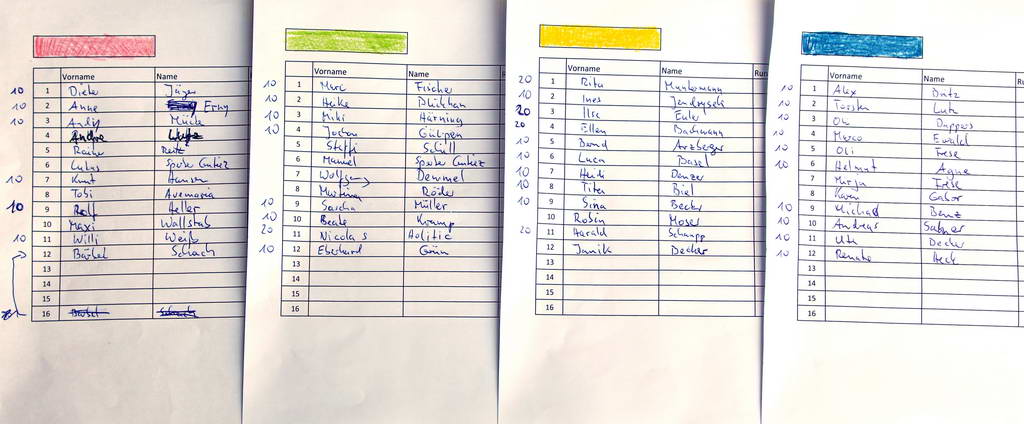 Vorname Name
10 1 Dieter Jäger
10 2 Anne Erny
10 3 Andy Mücke
4 Andre
5 Reitz
6 Gutiez
10 7 Kurt Hansen
8 Tobi Avemaria
10 9 Ralf Heller
10 Maxi Wallstab
10 11 Willi Weiß
12 Bärbel Schach
13
14
15
16 Bärbel Schach
Vorname Name
10 1 Marc Fischer
10 2 Heike
10 3 Miki Härning
10 4 Jochen Gülpen
5 Steffi Schäll
6 Manuel Gutiez
7 Wolfgang Demmel
8 Martina Röder
10 9 Sascha Müller
10 10 Beate Kramp
20 11 Nicolas
10 12 Eberhard Grün
13
14
15
16
Vorname Name Run
20 1 Rita Munkemann
10 2 Ines
20 3 Ilse Euler
20 4 Ellen Bachmann
10 5 Bernd Arzberger
10 6 Luca Basel
10 7 Heidi Denzer
10 8 Titea Biel
10 9 Sina Becker
10 Robin Moser
20 11 Harald Schaupp
12 Janik Decker
13
14
15
16
Vorname Name
10 1 Alex Dietz
10 2 Torsten Lutz
10 3 Oli Dappers
10 4 Marco Ewald
10 5 Oli Frese
10 6 Helmut Agne
7 Mirja Frese
8 Karin Gabor
10 9 Michael Benz
10 10 Andreas
10 11 Ute Decker
10 12 Renate Heck
13
14
15
16